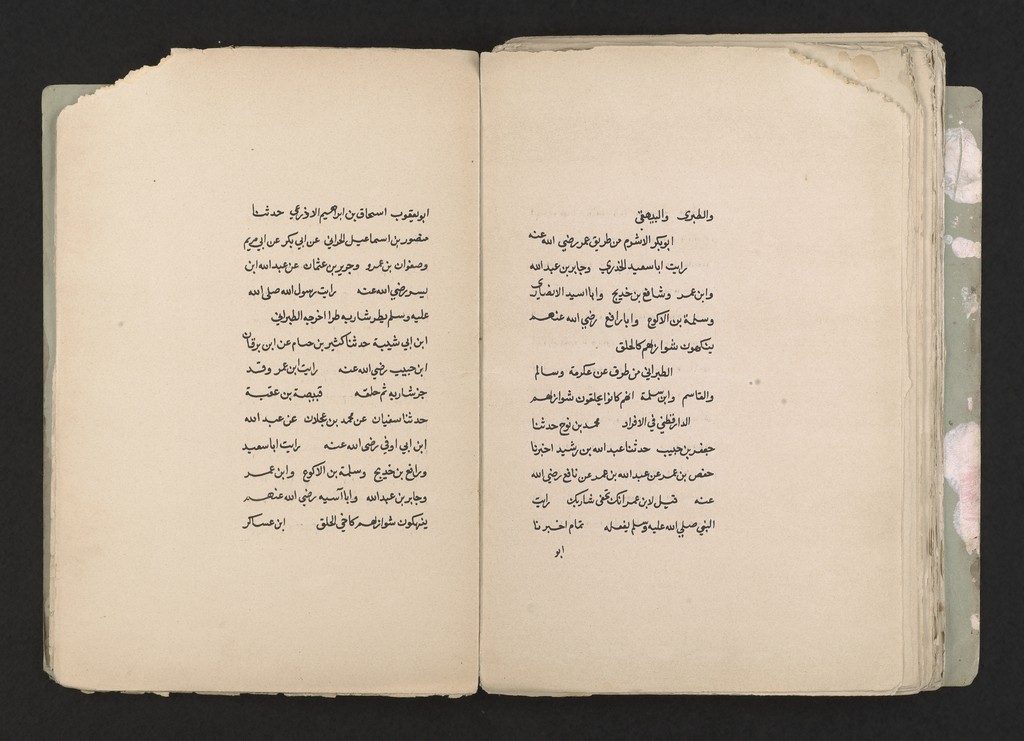 والطبرى والبيهقى
ابوبكر الاشرم من طريق عمر رضي الله عنه
رايت اباسعيد الخدري وجابر بن عبدالله
وابن عمر وشافع بن خديج وابا اسيد الانصارى
وسلمة بن الاكوع وابا رافع رضي الله عنهم
ينكهون شواربهم كالحلق
الطبراني من طرق عن عكرمة وسالم
والقاسم وابن سلمة انهم كانوا يحلقون شواربهم
الدارقطني في الافراد محمد بن نوح حدثنا
جعفر بن حبيب حدثنا عبدالله بن رشيد اخبرنا
حفص بن عمر عن عبدالله بن عمر عن نافع رضي الله
عنه قيل لابن عمر انك تحفى شاربك رايت
النبي صلى الله عليه وسلم يفعله تمام اخبرنا
ابو
ابويعقوب اسحاق بن ابرهيم الاذرعي حدثنا
منصور بن اسماعيل الحراني عن ابي بكر عن ابي مريم
وصفوان بن عمرو وجرير بن عثمان عن عبدالله ابن
يسر رضي الله عنه رايت رسول الله صلى الله
عليه وسلم يطر شاربه طرا اخرجه الطبراني
ابن ابي شيبة حدثنا كثير بن حسام عن ابن برقان
ابن حبيب رضي الله عنه رايت ابن عمر وقد
جز شاربه ثم حلقه قبيصة بن عقبة
حدثنا سفيان عن محمد بن عجلان عن عبد الله
ابن ابي اوفى رضى الله عنه رايت اباسعيد
ورافع بن خديج وسلمة بن الاكوع وابن عمر
وجابر بن عبدالله وابا آسيه رضي الله عنهم
ينهكون شواربهم كاخي الحلق ابن عساكر